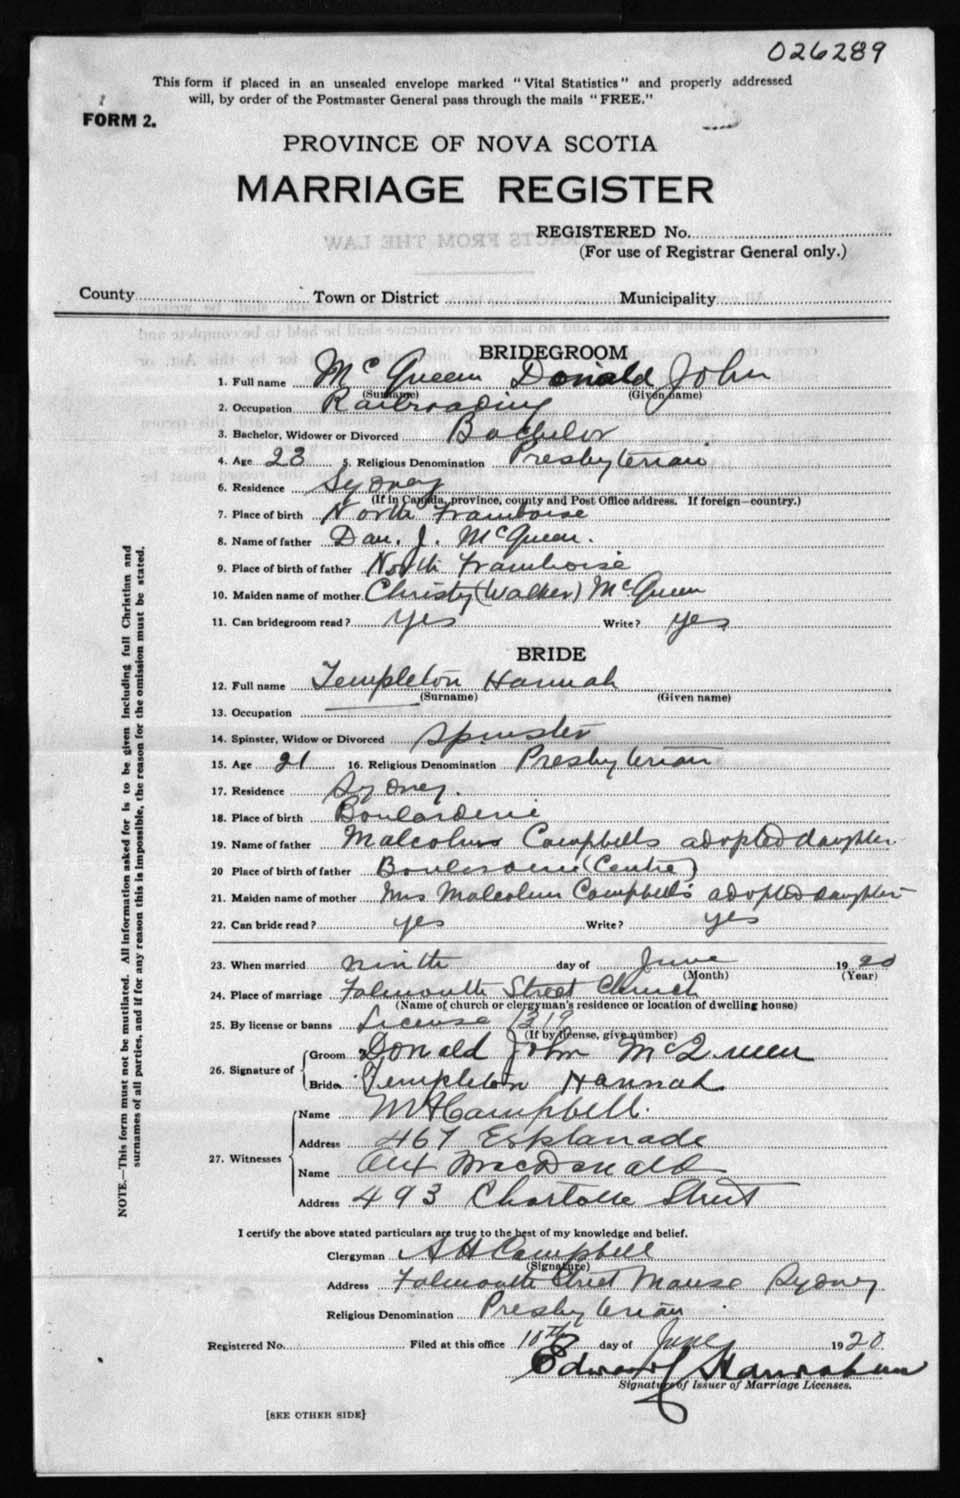 026289
This form if placed in an unsealed envelope marked "Vital Statistics" and properly addressed
will, by order of the Postmaster General pass through the mails "FREE."
FORM 2.
PROVINCE OF NOVA SCOTIA
MARRIAGE REGISTER
REGISTERED No.
(For use of Registrar General only.)
County Town or District Municipality
BRIDEGROOM
1. Full name McQueen Donald John
(Surname) (Given name)
2. Occupation Railroading
3. Bachelor, Widower or Divorced Bachelor
4. Age 23 5. Religious Denomination Presbyterian
6. Residence Sydney
(If in Canada, province, county and Post Office address. If foreign—country.)
7. Place of birth North Framboise
8. Name of father Dan. J. McQueen.
9. Place of birth of father North Framboise
10. Maiden name of mother Christy (Walker) McQueen
11. Can bridegroom read? Yes Write? yes
BRIDE
12. Full name Templeton Hannah
(Surname) (Given name)
13. Occupation
14. Spinster, Widow or Divorced Spinster
15. Age 21 16. Religious Denomination Presbyterian
17. Residence Sydney.
18. Place of birth Boularderie
19. Name of father Malcolm Campbells adopted daughter
20 Place of birth of father Boularderie (Centre)
21. Maiden name of mother Mrs Malcolm Campbell's adopted daughter
22. Can bride read? yes Write? yes
23. When married ninth day of June 1920
(Month) (Year)
24. Place of marriage Falmouth Street Church
(Name of church or clergyman's residence or location of dwelling house)
25. By license or banns License 1319
(If by license, give number)
26. Signature of Groom Donald John McQueen
Bride Templeton Hannah
27. Witnesses Name M H Campbell.
Address 467 Esplanade
Name Alex MacDonald
Address 493 Charlotte Street
I certify the above stated particulars are true to the best of my knowledge and belief.
Clergyman A H Campbell
(Signature)
Address Falmouth Street Manse Sydney
Religious Denomination Presbyterian
Registered No. Filed at this office 10th day of June 1920
Edward Hanrahan
Signature of Issuer of Marriage Licenses.
[SEE OTHER SIDE]
NOTE.—This form must not be mutilated. All information asked for is to be given including full Christian and
surnames of all parties, and if for any reason this is impossible, the reason for the omission must be stated.